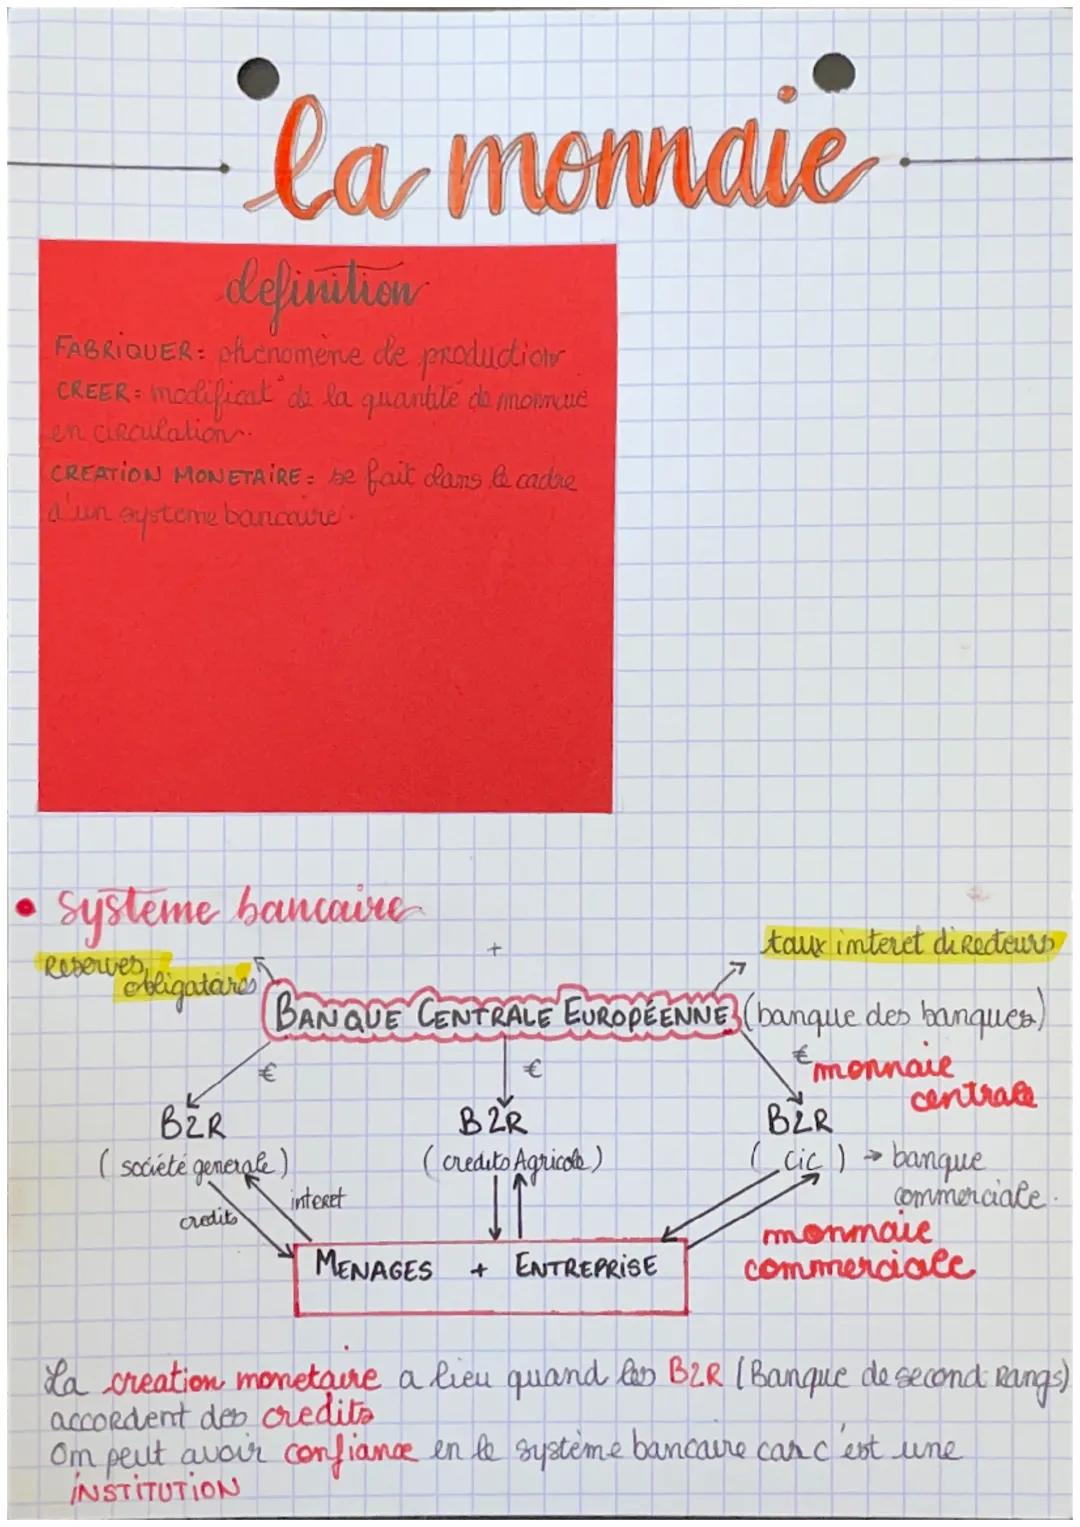 la monnaie
definition
FABRIQUER: phenomène de production
CREER: modificat° de la quantité de monnaie
en circulation.
CREATION MONETAIRE: se fait dans le cadre
d'un systeme bancaire.
• Système bancaire
+
taux interet directeurs
Reserves
obligataires
BANQUE CENTRALE EUROPÉENNE (banque des banques)
€ € €
monnaie
centrale
B2R B2R B2R
(société generale) (credits Agricole) (cic) → banque
commerciale.
interet
credits
monnaie
commerciale
MENAGES + ENTREPRISE
La creation monetaire a lieu quand les B2R (Banque de second Rangs)
accordent des credits
On peut avoir confiance en le système bancaire car c'est une
INSTITUTION